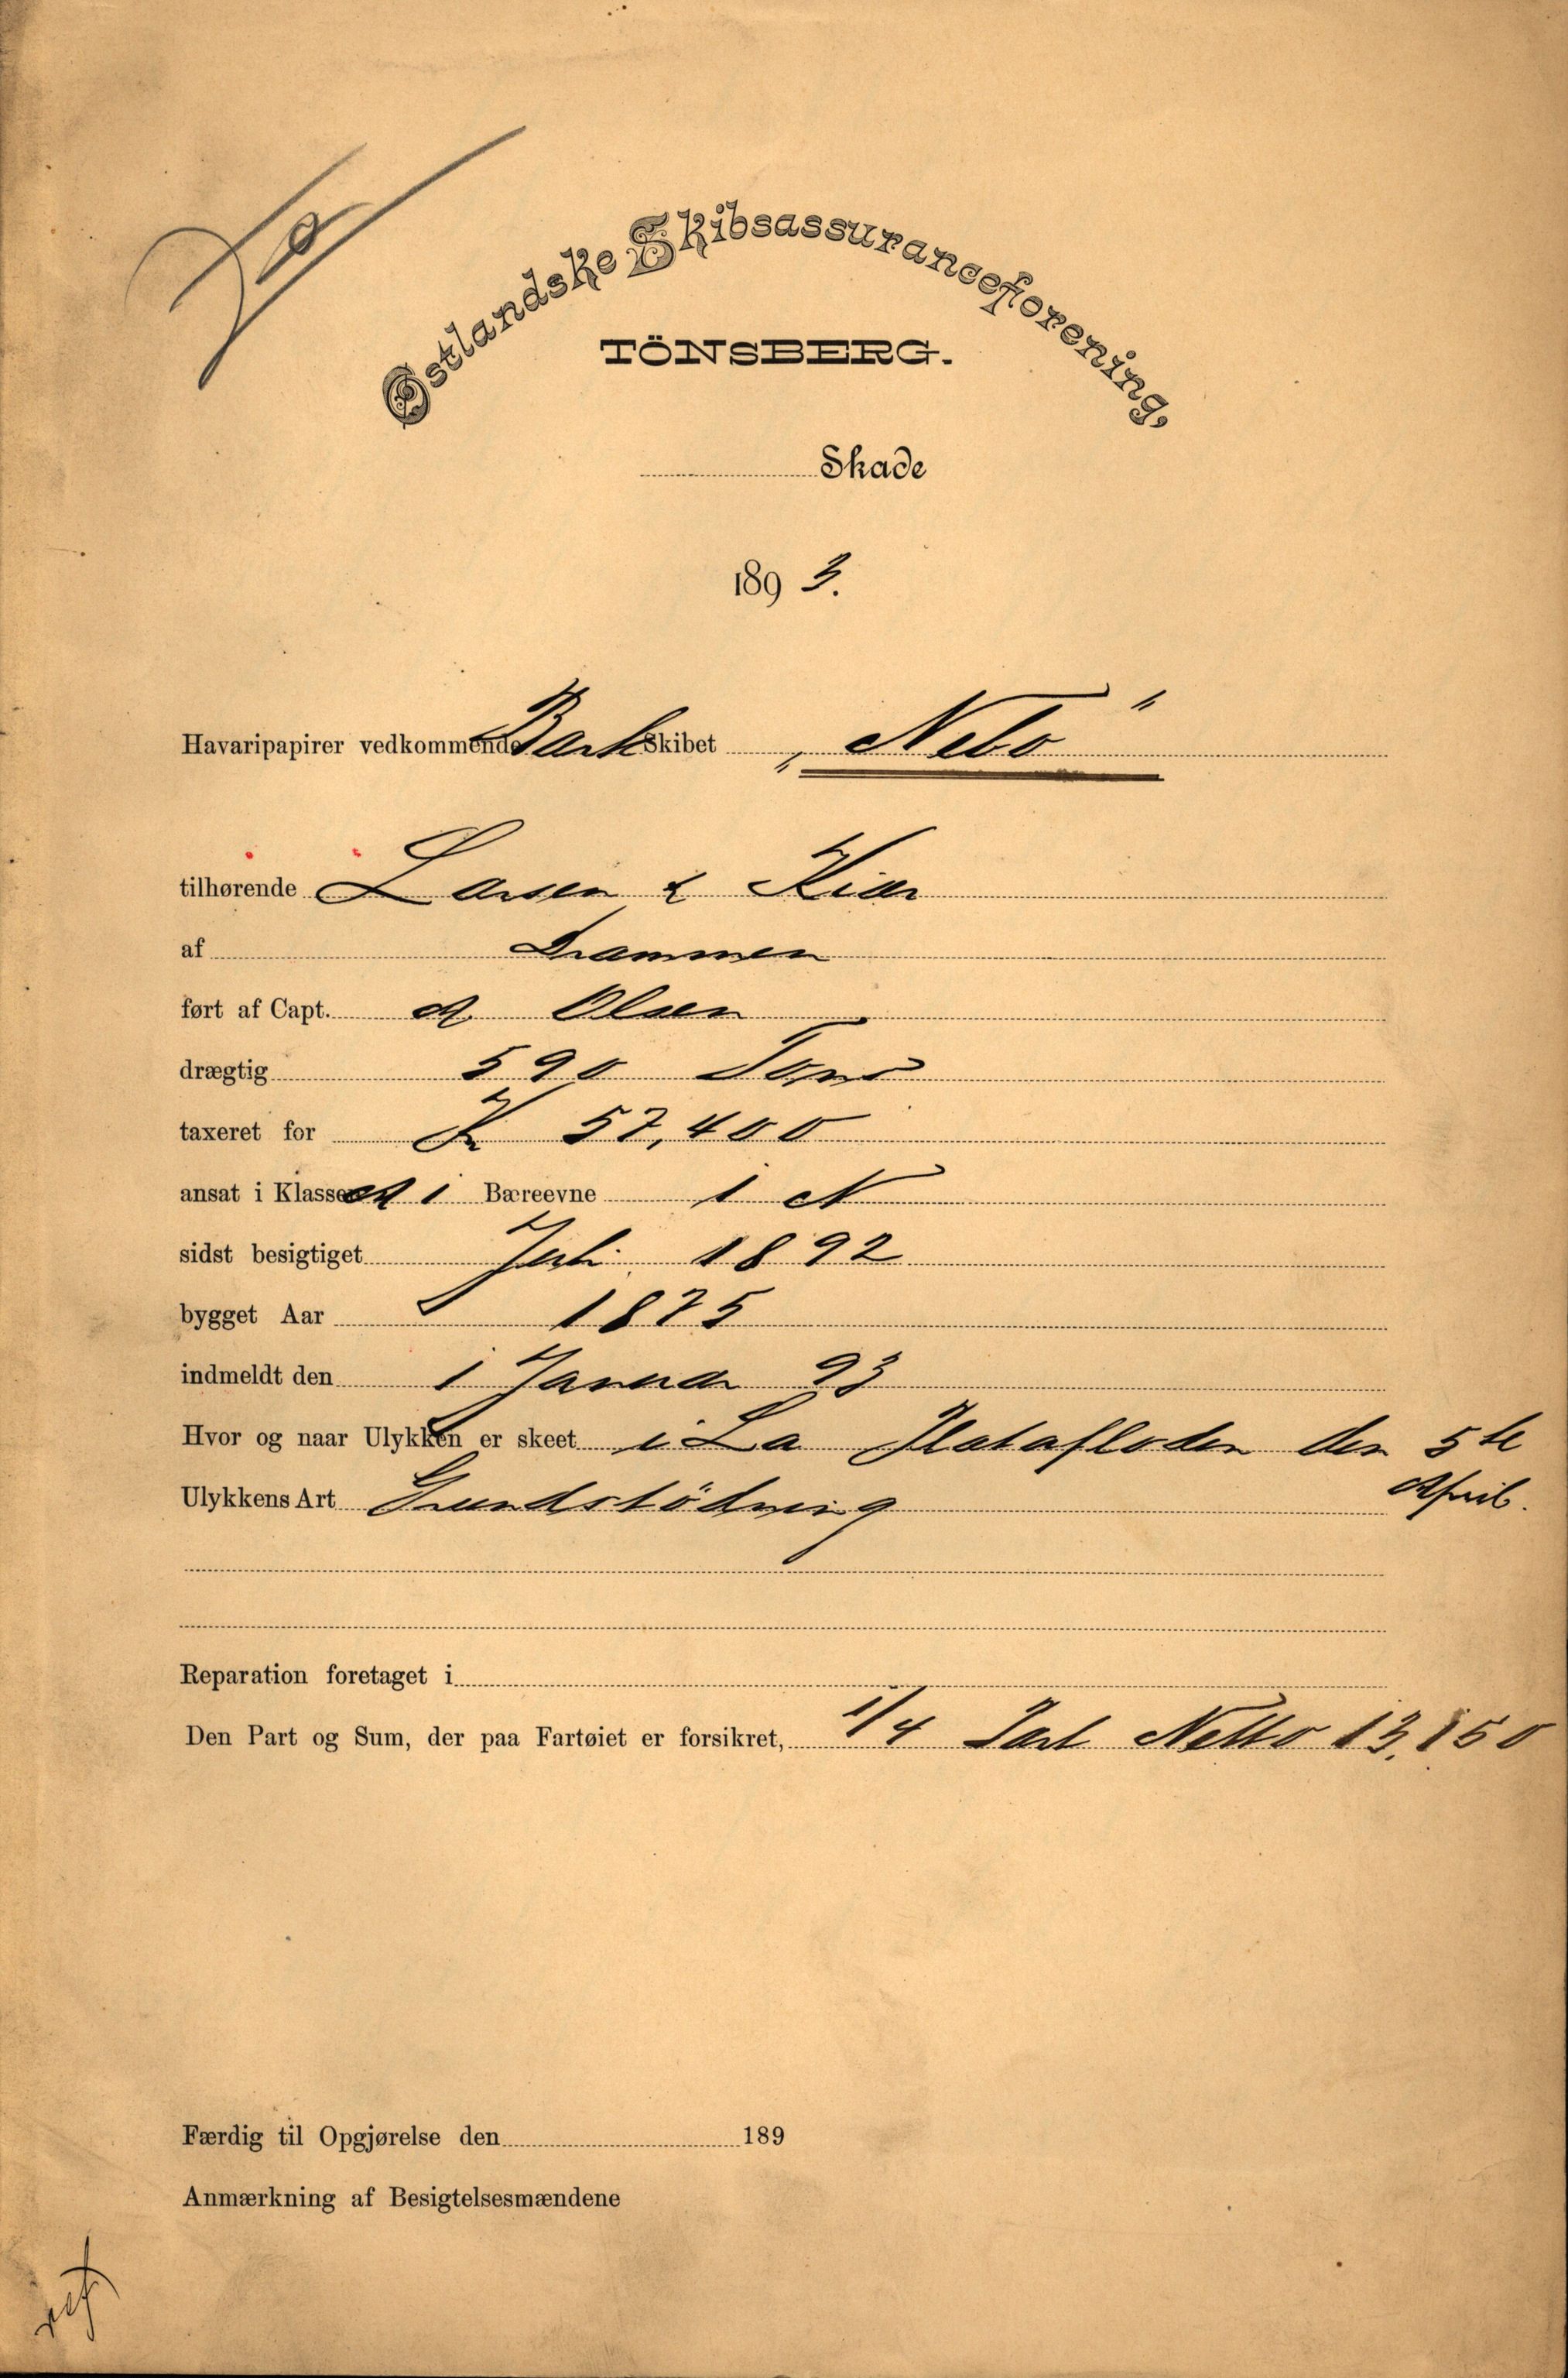 Østlandske Skibsassuranceforening,
TÖNSBERG.
Skade
1893.
Havaripapirer vedkommende Bark Skibet „Nebo“
tilhørende Larsen & Kiær
af Drammen
ført af Capt. A Olsen
drægtig 590 Tons
taxeret for Kr 57,400
ansat i Klasse A 1 Bæreevne 1 N
sidst besigtiget Juli 1892
bygget Aar 1875
indmeldt den 1 Januar 93
Hvor og naar Ulykken er skeet i La Platafloden den 5te
April.
Ulykkens Art Grundstödning
Reparation foretaget i
Den Part og Sum, der paa Fartøiet er forsikret, 1/4 Part Netto 13,150
Færdig til Opgjørelse den 189
Anmærkning af Besigtelsesmændene